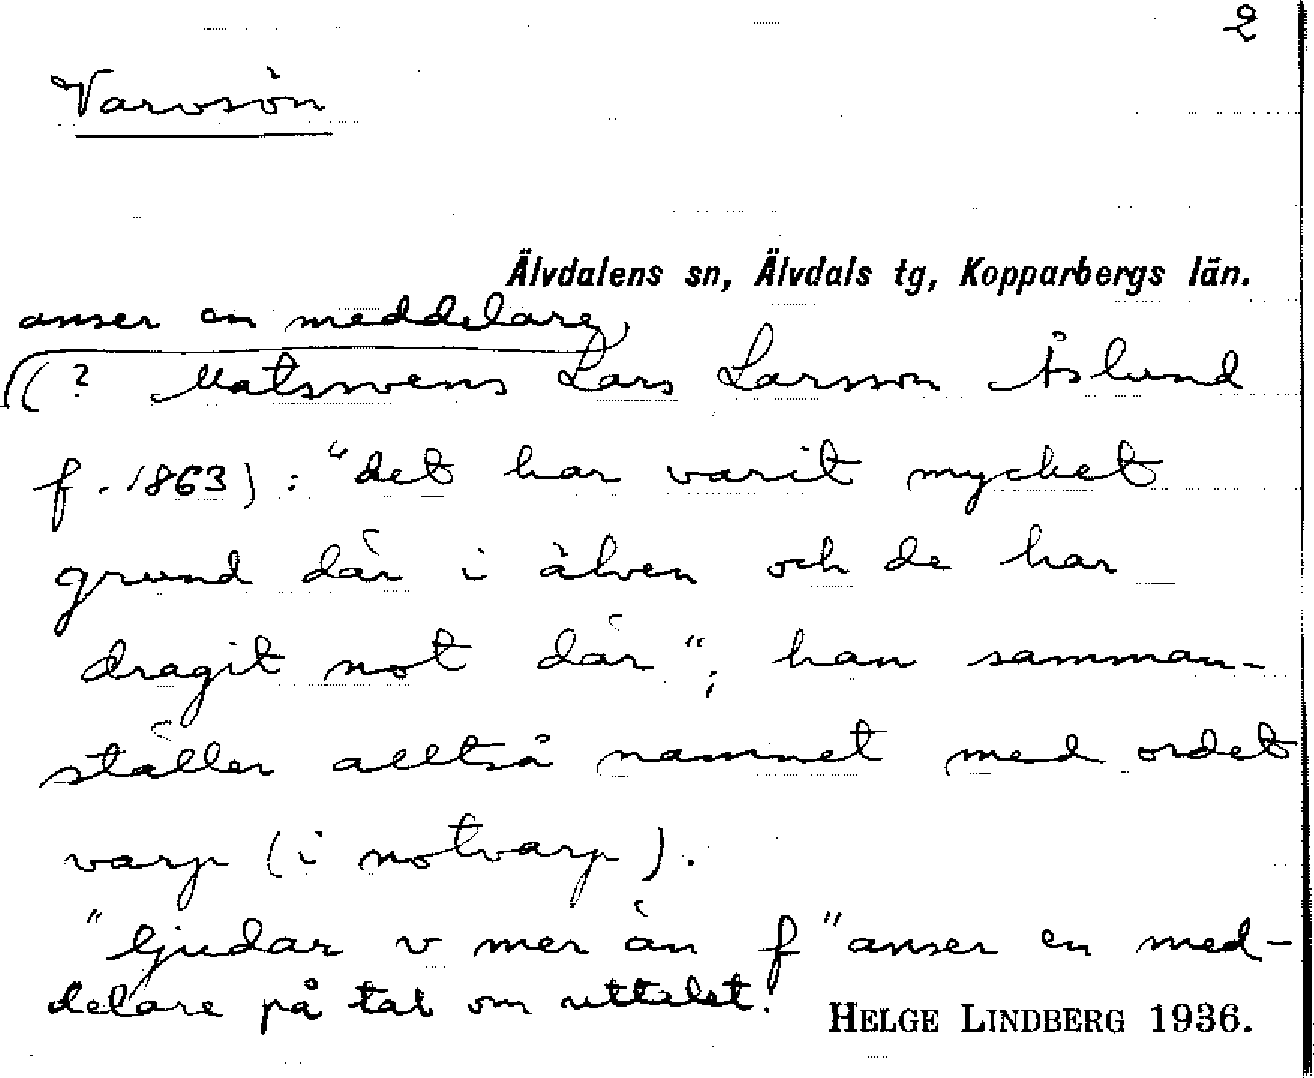 2
Varvsön
Älvdalens sn, Älvdals tg, Kopparbergs län.
anser en meddelare
(? Matssvens Lars Larsson Åslund
f. 1863): "det har varit mycket
grund där i älven och de har
dragit not där"; han samman-
ställer alltså namnet med ordet
varp (i notvarp).
"ljudar v mer än f" anser en med-
delare på tal om uttalet.
HELGE LINDBERG 1936.